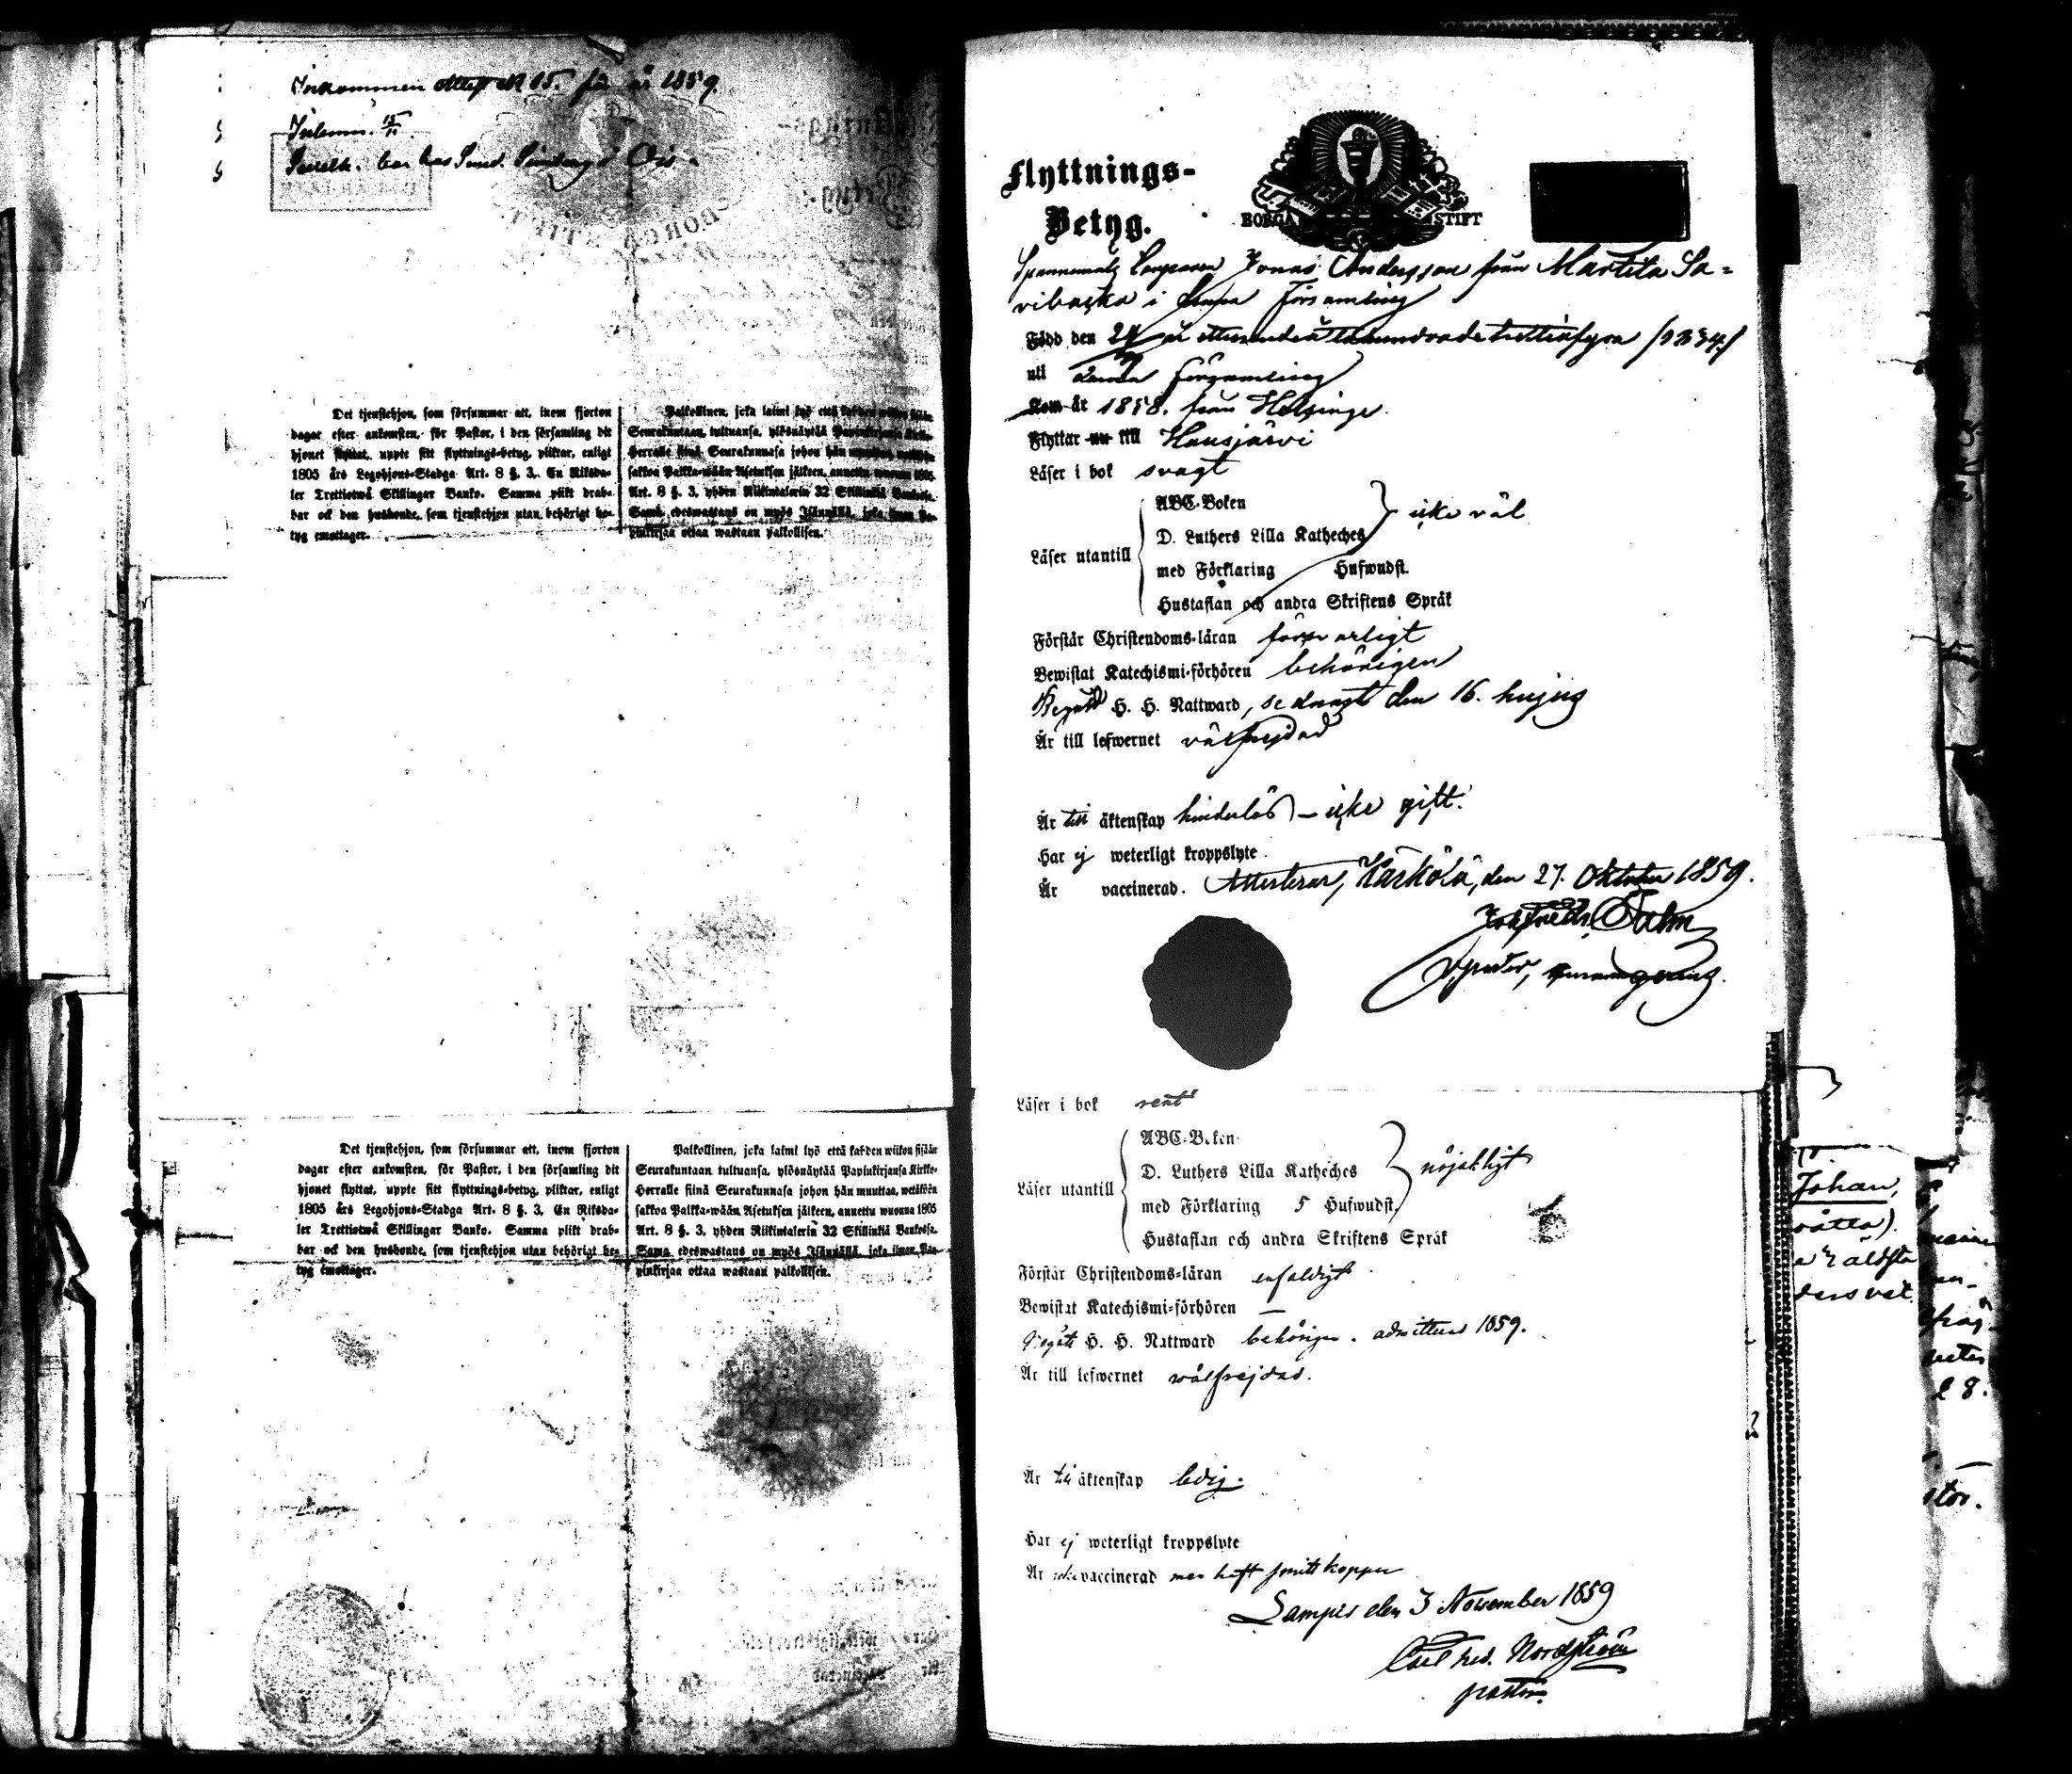 Inkommen attest N 15. för år 1859.
Det tjenstehjon, som försummar att, inom fjorton
dagar efter ankomsten, för Pastor, i den församling dit
hjonet flyttat, uppte sitt flyttnings-betyg, pliktar, enligt
1805 års Legohjons-Stadga Art. 8 §. 3. En Riksda-
ler Trettiotwå Skillingar Banko. Samma plikt drab-
bar ock den husbonde, som tjenstehjon utan behörigt be-
tyg emottager.
Palkollinen, joka laimi lyö että kahden wiikon sisään
Seurakuntaan tultuansa, ylösnäytää Papinkirjansa Kirkko-
Herralle siinä Seurakunnasa johon hän muuttaa, wetäköön
sakkoa Palkka-wään Asetuksen jälkeen, annettu wuonna 1805
Art. 8 §. 3. yhden Riikintalerin 32 Skillinkiä Bankosa.
Sama edeswastaus on myös Isännällä, joka ilman Pa-
pinkirjaa ottaa wastaan palkollisen.
Det tjenstehjon, som försummar att, inom fjorton
dagar efter ankomsten, för Pastor, i den församling dit
hjonet flyttat, uppte sitt flyttnings-betyg, pliktar, enligt
1805 års Legohjons-Stadga Art. 8 §. 3, En Riksda-
ler Trettiotwå Skillingar Banko. Samma plikt drab-
bar ock den husbonde, som tjenstehjon utan behörigt be-
tyg emottager.
Palkollinen, joka laimi lyö että kahden wiikon sisään
Seurakuntaan tultuansa, ylösnäytää Papinkirjansa Kirkko-
Herralle siinä Seurakunnasa johon hän muuttaa, wetäköön
sakkoa Palkka-wään Asetuksen jälkeen, annettu wuonna 1805
Art. 8 §. 3, yhden Riikintalerin 32 Skillinkiä Bankosa.
Sama edeswastaus on myös Isännällä, joka ilman Pa-
pinkirjaa ottaa wastaan palkollisen.
Flyttnings-
Betyg.
BORGÅ STIFT
Jonas Andersson från Marttila Sa-
vibacka i denna Församling
Född den 24 år ettusendeåttahundradetrettiofyra /1834/
uti denna församling
Kom år 1858. från Helsinge.
Flyttar nu till Hausjärvi
Läser i bok svagt
Läser utantill
ABC-Boken
D. Luthers Lilla Katheches
med Förklaring Hufwudst.
Hustaflan och andra Skriftens Språk
icke väl
Förstår Christendoms-läran försvarligt
Bewistat Katechismi-förhören behörigen
Begått H. H. Nattward, sednast den 16. hujus
Är till lefwernet välfrejdad
Är till äktenskap hinderlös – icke gift.
Har ej weterligt kroppslyte.
Är vaccinerad. Attesterar, Kärkölä, den 27. Oktober 1859.
Läser i bok rent
Läser utantill
ABC-Boken
D. Luthers Lilla Katheches
med Förklaring 5 Hufwudst.
Hustaflan och andra Skriftens Språk
nöjaktigt
Förstår Christendoms-läran enfaldigt
Bewistat Katechismi-förhören —
Begått H. H. Nattward behörigen. admitterad 1859.
Är till lefwernet wälfrejdad.
Är till äktenskap ledig.
Har ej weterligt kroppslyte
Är icke vaccinerad men haft smittkoppor
Lampis den 3 November 1859
Carl Fred. Nordström
pastor.
Johan,